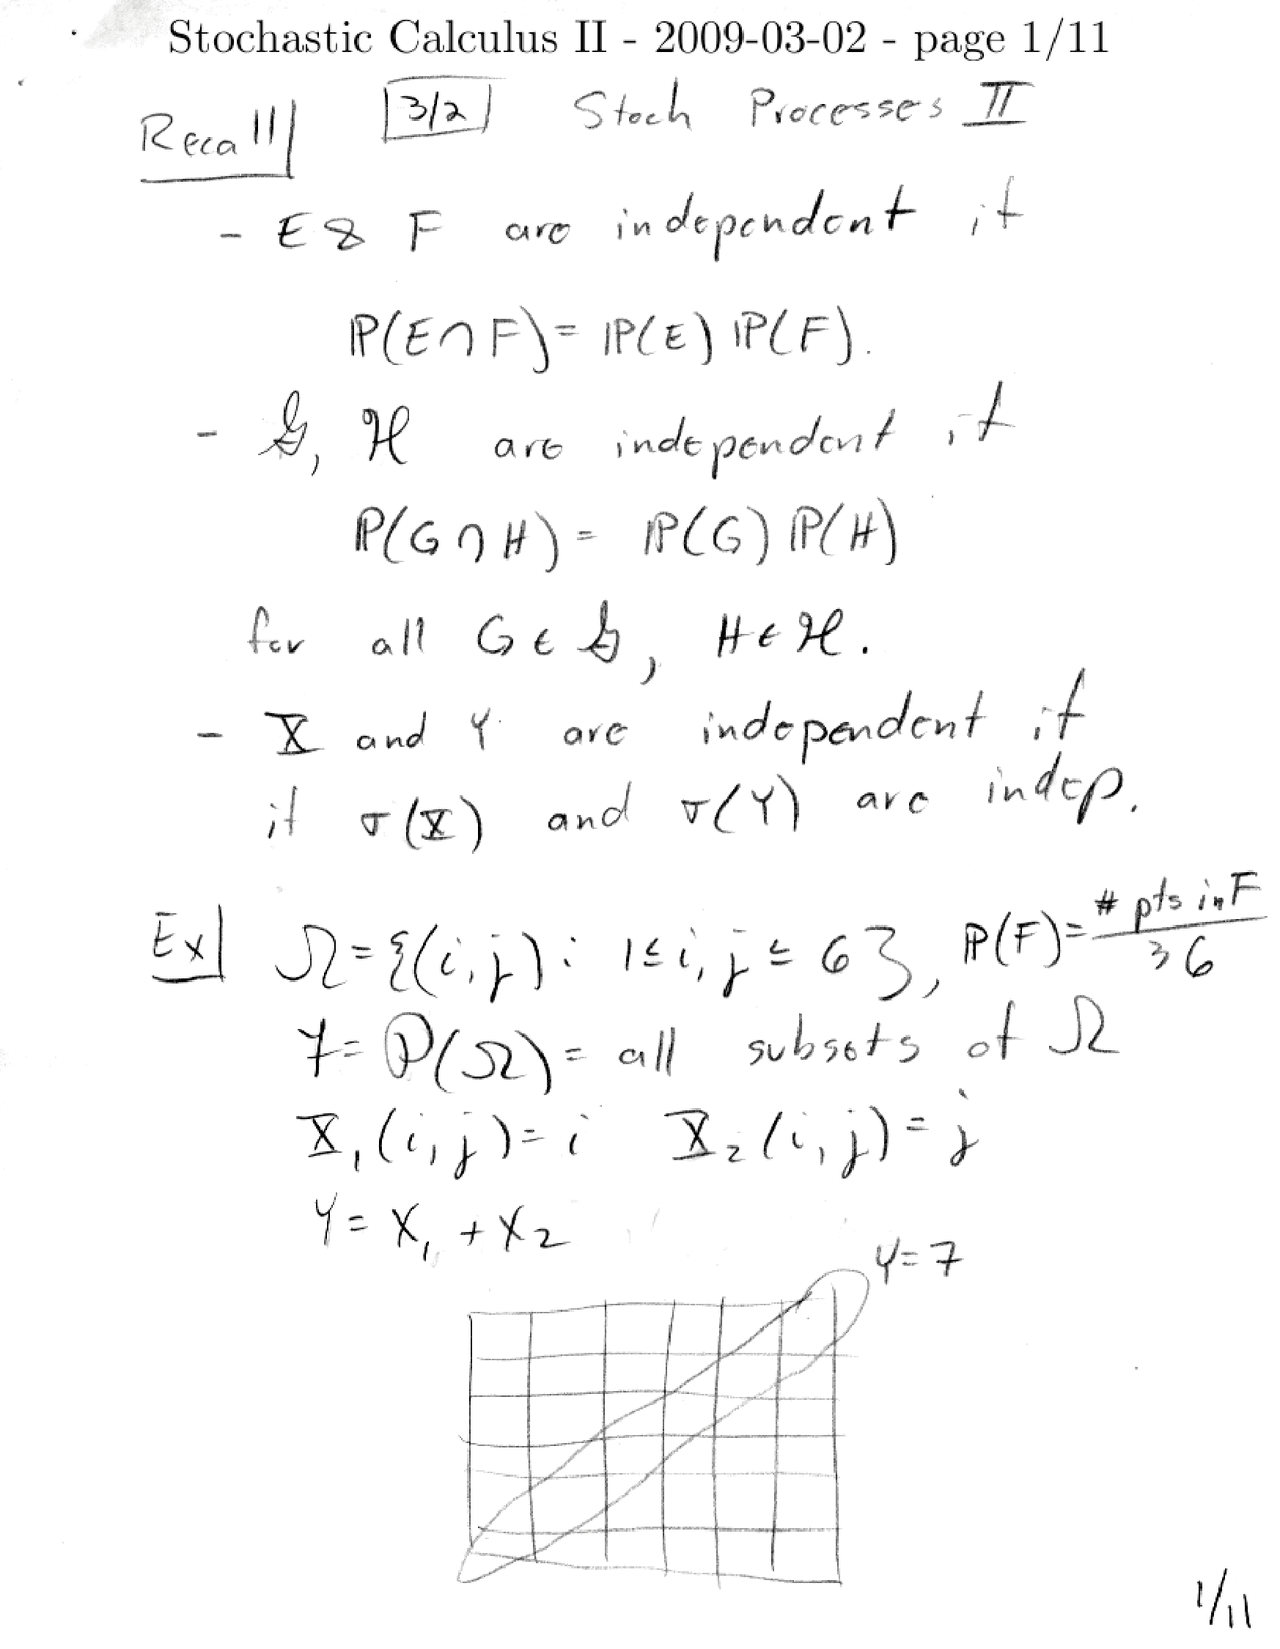 Stochastic Calculus II - 2009-03-02 - page 1/11
Recall 3/2 Stoch Processes II
- E & F are independent if
ℙ(E∩F) = ℙ(E) ℙ(F).
- 𝒢, ℋ are independent if
ℙ(G∩H) = ℙ(G) ℙ(H)
for all G ∈ 𝒢, H ∈ ℋ.
- X and Y are independent if
if σ(X) and σ(Y) are indep.
Ex Ω = {(i,j) : 1 ≤ i, j ≤ 6}, ℙ(F) = # pts in F / 36
ℱ = 𝒫(Ω) = all subsets of Ω
X₁(i,j) = i X₂(i,j) = j
Y = X₁ + X₂
Y = 7
1/11